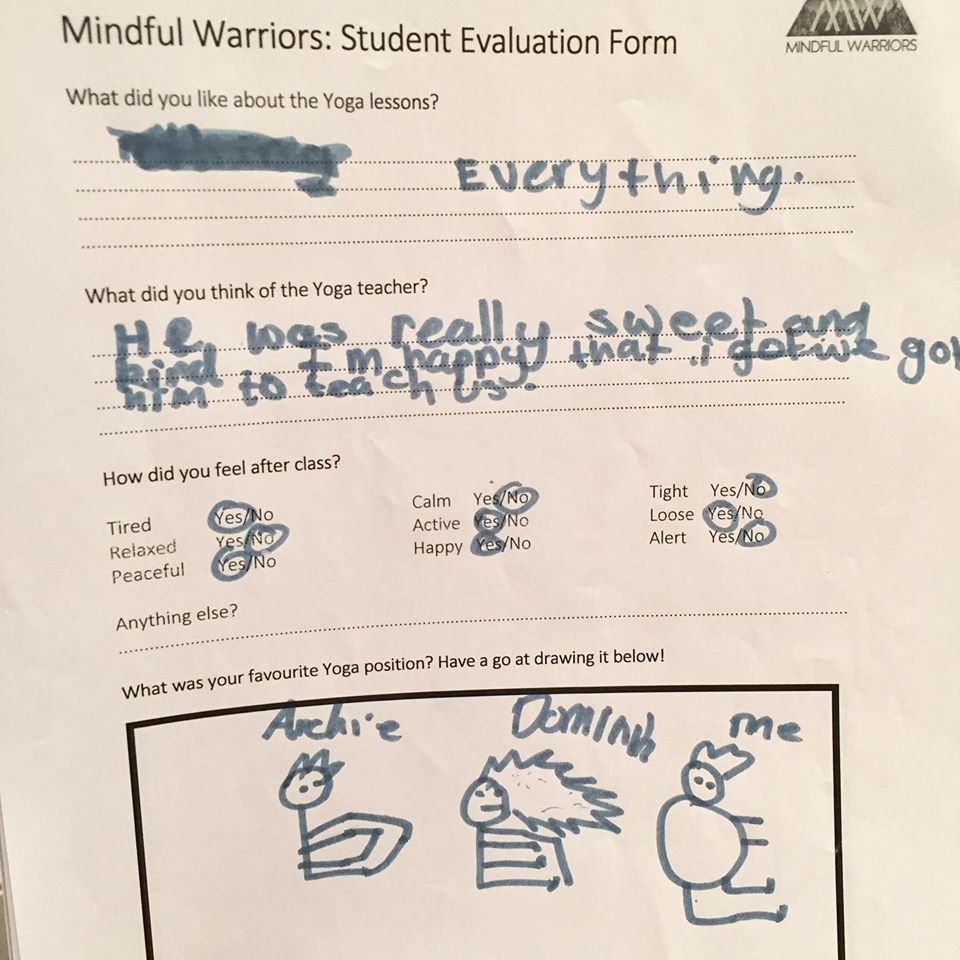 Mindful Warriors: Student Evaluation Form
MINDFUL WARRIORS
What did you like about the Yoga lessons?
Everything.
What did you think of the Yoga teacher?
He was really sweet and
kind I'm happy that i got we got
him to teach us.
How did you feel after class?
Tired Yes/No Calm Yes/No Tight Yes/No
Relaxed Yes/No Active Yes/No Loose Yes/No
Peaceful Yes/No Happy Yes/No Alert Yes/No
Anything else?
What was your favourite Yoga position? Have a go at drawing it below!
Archie me